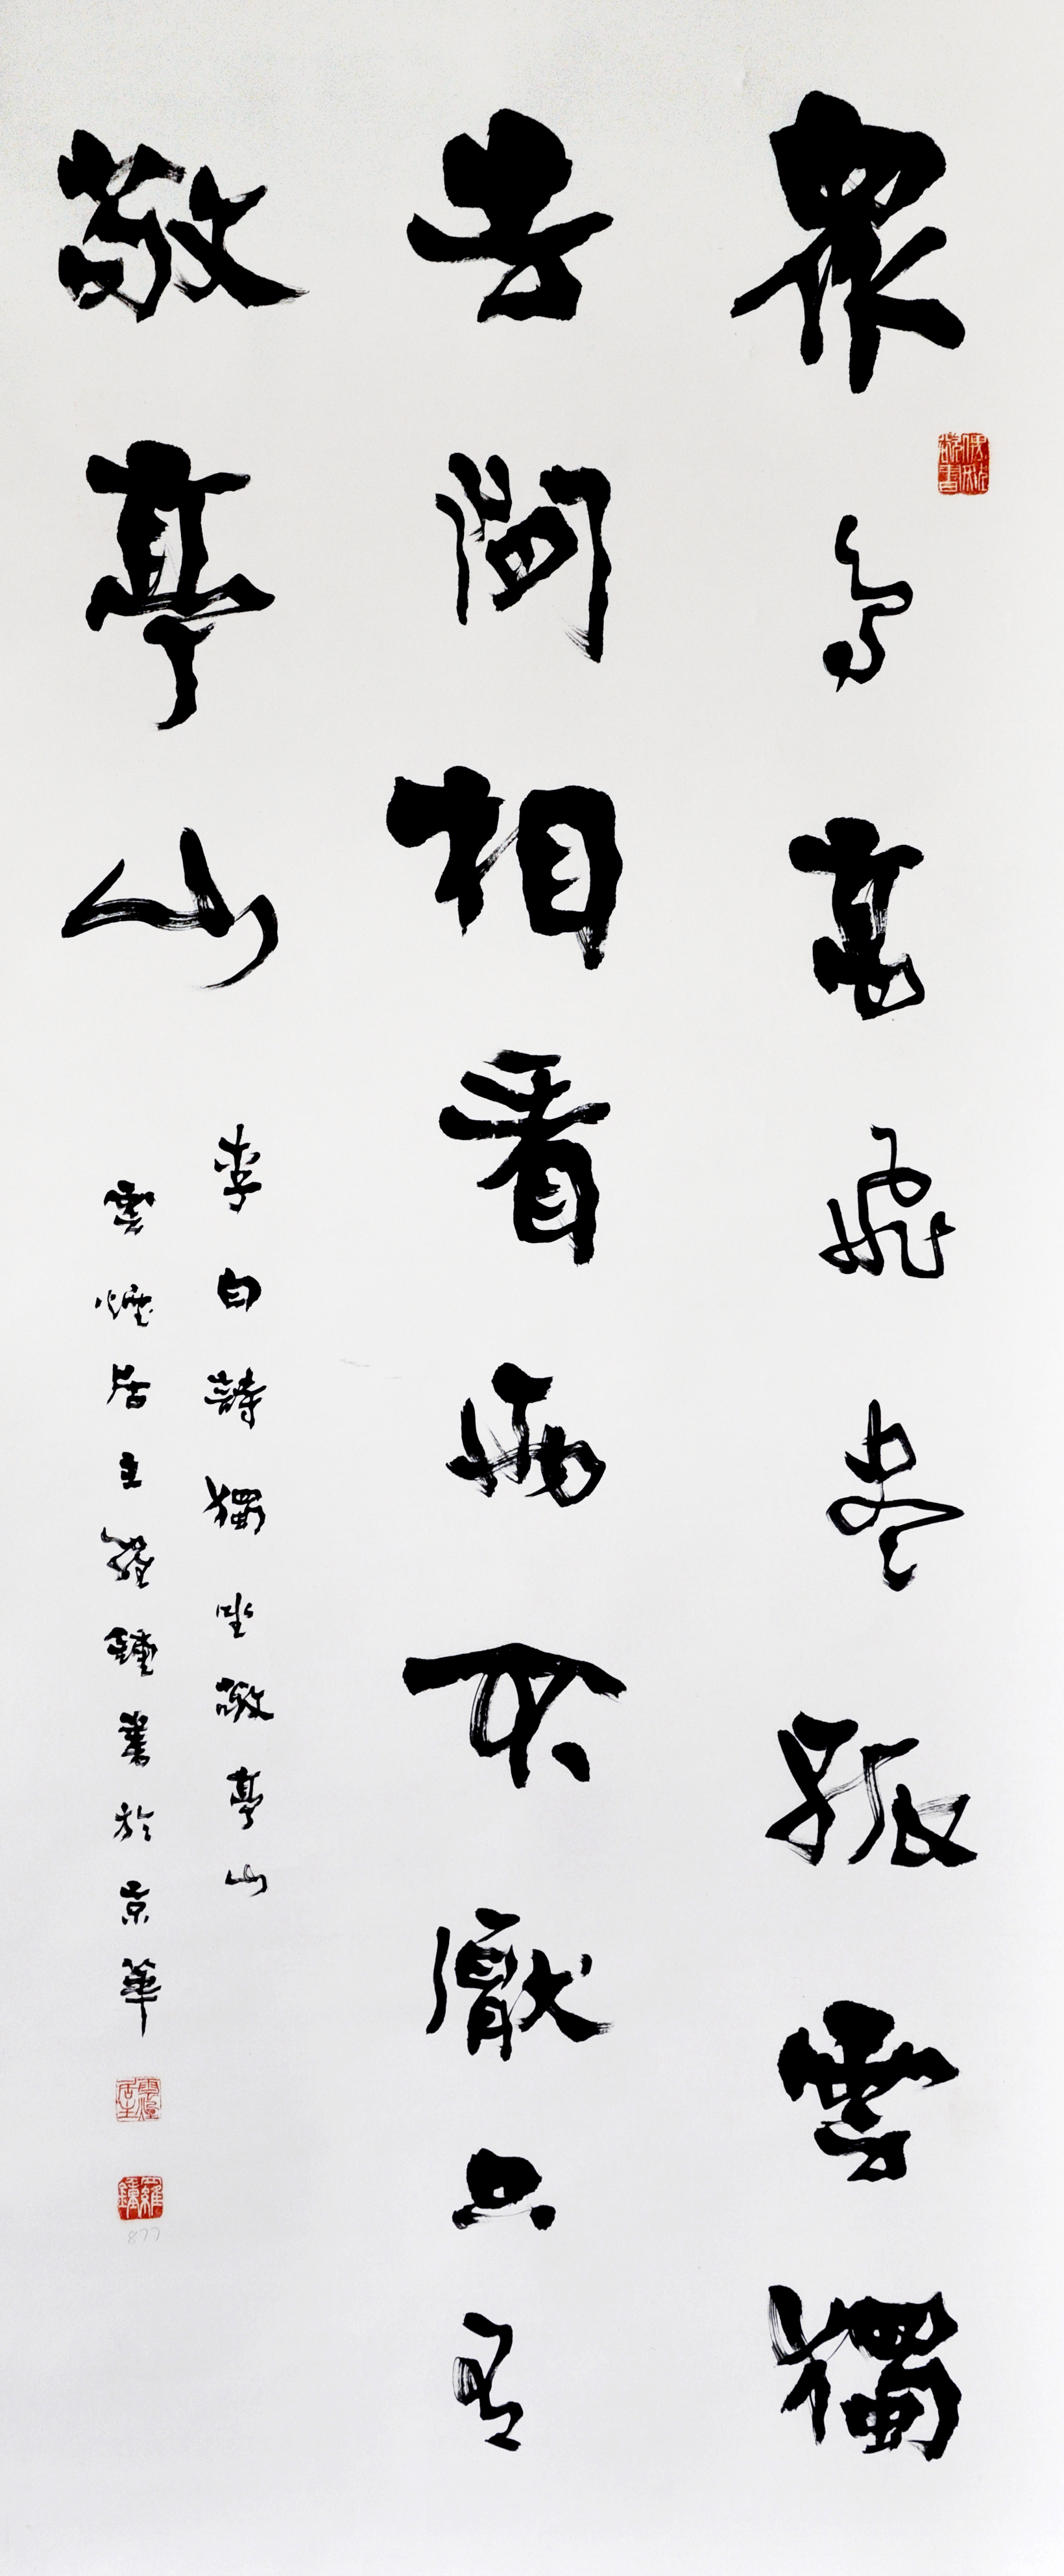 眾鳥高飛盡孤雲獨
去閑相看兩不厭只有
敬亭山
李白詩獨坐敬亭山
雲煙居主羅鍾書於京華
雲煙居主
羅鍾
877